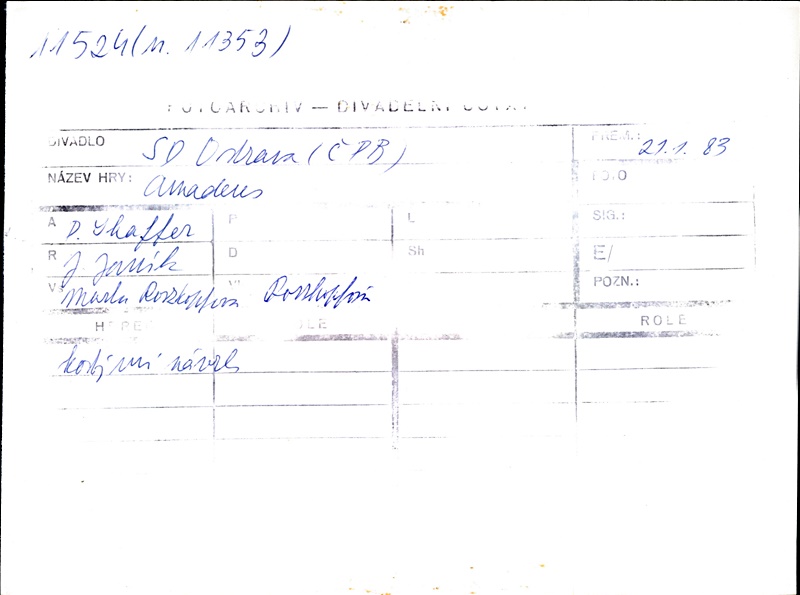 11524 (n. 11353)
FOTOARCHIV — DIVADELNÍ ÚSTAV
DIVADLO SD Ostrava (ČPB) PREM.: 21.1. 83
NÁZEV HRY: Amadeus FOTO
A P. Shaffer P L SIG.:
R J. Janík D Sh E/
V Marta Roszkopfová Roszkopfová POZN.:
HEREC ROLE ROLE
kostýmní návrh